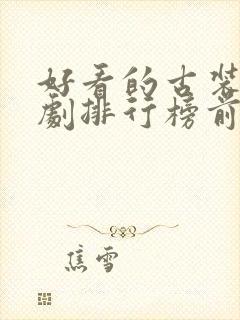 好看的古装
剧排行榜前
焦雪